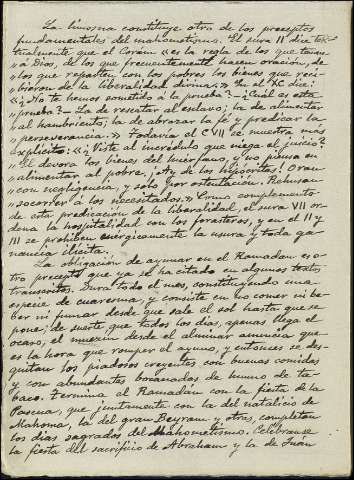 La limosna constituye otro de los preceptos
fundamentales del mahometismo. El sura II dice tex-
tualmente que el Corán «es la regla de los que temen
á Dios, de los que frecuentemente hacen oración, de
los que reparten con los pobres los bienes que reci-
bieron de la liberalidad divina.» En el XC dice:
«¿No te hemos sometido á la prueba? ¿Cuál es esta
prueba? La de rescatar al esclavo; la de alimentar
al hambriento; la de abrazar la fé y predicar la
perseverancia.» Todavía el CVII se muestra más
explícito: «¿Viste al incrédulo que niega el juicio?
El devora los bienes del huérfano, y no piensa en
alimentar al pobre; ¡Ay de los hipócritas! Oran
con negligencia, y solo por ostentación. Rehusan
socorrer á los necesitados.» Como complemento
de esta predicación de la liberalidad, el sura VII or-
dena la hospitalidad con los forasteros, y en el II y
III se prohiben enérgicamente la usura y toda ga-
nancia ilícita.
La obligación de ayunar en el Ramadán es o-
tro precepto que ya se ha citado en algunos textos
transcritos. Dura todo el mes, constituyendo una
especie de cuaresma, y consiste en no comer ni be-
ber ni fumar desde que sale el sol hasta que se
pone; de suerte que todos los días, apenas llega el
ocaso, el muezin desde el alminar anuncia que
es la hora que romper el ayuno, y entonces se des-
quitan los piadosos creyentes con buenas comidas
y con abundantes bocanadas de humo de ta-
baco. Termina el Ramadán con la fiesta de la
Pascua, que juntamente con la del natalicio de
Mahoma, la del gran Beyram y otras, completan
los días sagrados del mahometismo. Celébranse
la fiesta del sacrificio de Abraham y la de Juan